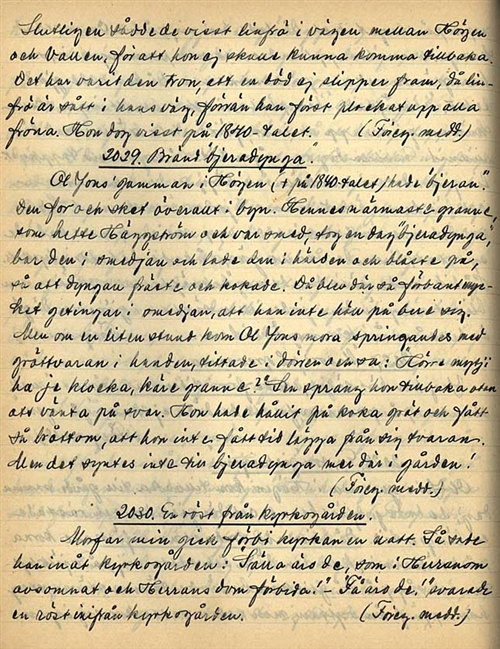 Slutligen sådde de visst linfrö i vägen mellan Högen
och Vallen, för att hon ej skulle kunna komma tillbaka.
Det har varit den tron, att en död ej slipper fram, då lin-
frö är sått i hans väg, förrän han först plockat upp alla
fröna. Hon dog visst på 1840-talet. (Föreg. medd.)
2029. Bränd "bjeradynga".
Ol Jons' gamman i Högen († på 1840-talet) hade "bjeran".
Den for och sket överallt i byn. Hennes närmaste granne,
som hette Häggström och var smed, tog en dag "bjeradynga",
bar den i smedjan och lade den i härden och blåste på,
så att dyngan fräste och kokade. Då blev där så förbannt myc-
ket getingar i smedjan, att han inte höll på berge sig.
Men om en liten stund kom Ol Jons mora springandes med
gröttvaran i handen, tittade i dörren och sa: Hörre
ha je klocka, käre granne? Sen sprang hon tillbaka utan
att vänta på svar. Hon hade hållit på koka gröt och fått
så bråttom, att hon inte fått tid lägga från sig tvaran.
Men det syntes inte till bjeradynga mer där i gården!
(Föreg. medd.)
2030. En röst från kyrkogården.
Morfar min gick förbi kyrkan en natt. Så sade
han inåt kyrkogården: "Sälla äro de, som i Herranom
avsomnat och Herrans dom förbida!" – "Få äro de!" svarade
en röst inifrån kyrkogården. (Föreg. medd.)